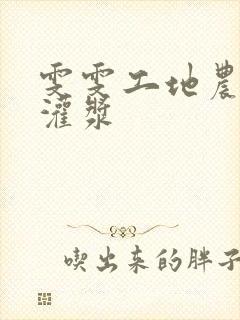 雯雯工地農
灌漿
喫出来的胖子